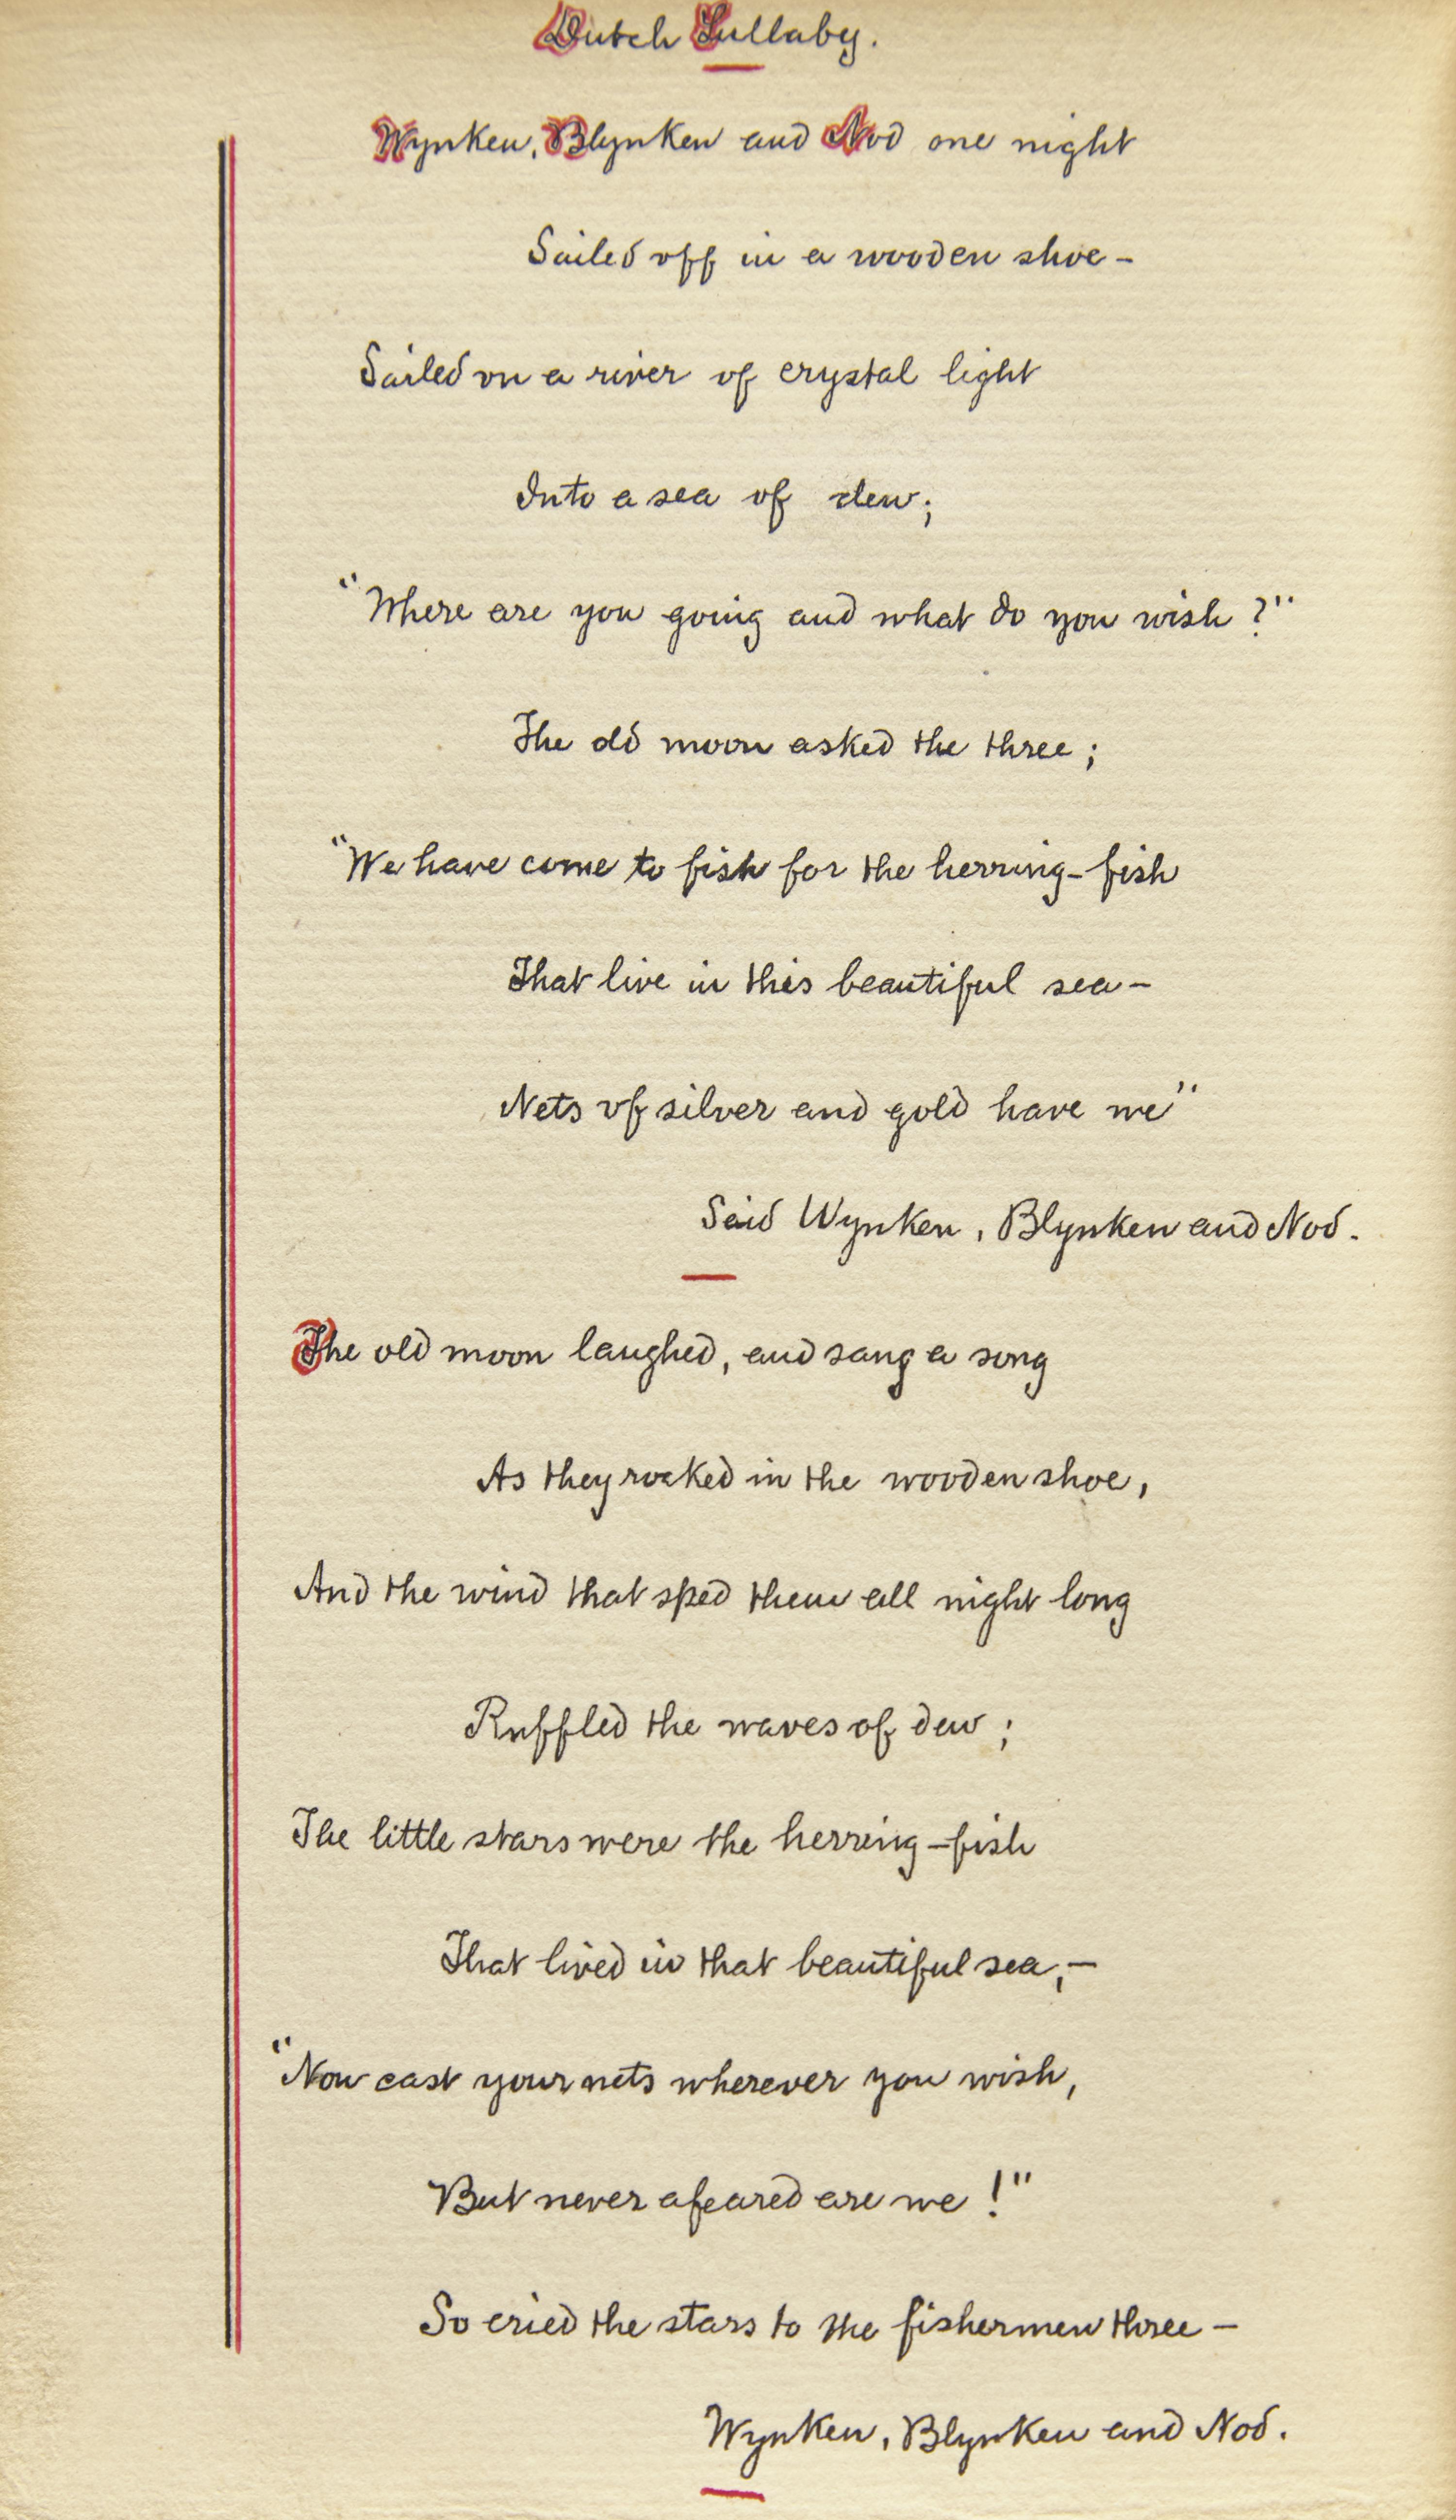 Dutch Lullaby.
Wynken, Blynken and Nod one night
Sailed off in a wooden shoe -
Sailed on a river of crystal light
Into a sea of dew;
"Where are you going and what do you wish?"
The old moon asked the three;
"We have come to fish for the herring-fish
That live in this beautiful sea -
Nets of silver and gold have we"
Said Wynken, Blynken and Nod.
The old moon laughed, and sang a song
As they rocked in the wooden shoe,
And the wind that sped them all night long
Ruffled the waves of dew;
The little stars were the herring-fish
That lived in that beautiful sea, -
"Now cast your nets wherever you wish,
But never afeared are we!"
So cried the stars to the fishermen three -
Wynken, Blynken and Nod.